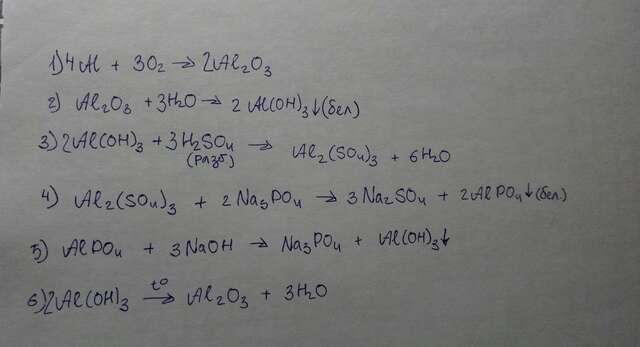 1) 4Al + 3O₂ → 2Al₂O₃
2) Al₂O₃ + 3H₂O → 2 Al(OH)₃↓(бел)
3) 2Al(OH)₃ + 3H₂SO₄ → Al₂(SO₄)₃ + 6H₂O
(разб)
4) Al₂(SO₄)₃ + 2Na₃PO₄ → 3Na₂SO₄ + 2AlPO₄↓(бел.)
5) AlPO₄ + 3NaOH → Na₃PO₄ + Al(OH)₃↓
6) 2Al(OH)₃ →t° Al₂O₃ + 3H₂O